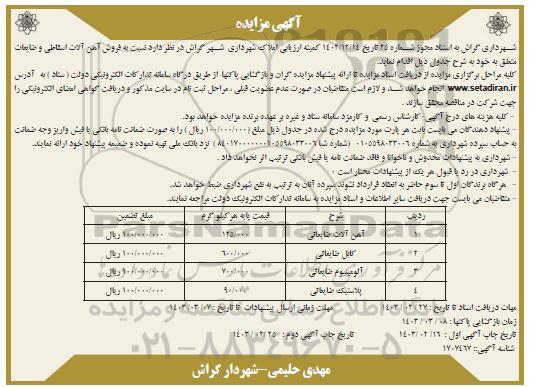 آگهی مزایده
شهرداری گراش به استناد مجوز شماره ۲۵ تاریخ ۱۴۰۲/۱۲/۱۴ کمیته ارزیابی املاک شهرداری شهر گراش در نظر دارد نسبت به فروش آهن آلات اسقاطی و ضایعات
متعلق به خود به شرح جدول ذیل اقدام نماید.
کلیه مراحل برگزاری مزایده از دریافت اسناد مزایده تا ارائه پیشنهاد مزایده گران و بازگشایی پاکتها از طریق درگاه سامانه تدارکات الکترونیکی دولت ( ستاد ) به آدرس
www.setadiran.ir انجام خواهد شد و لازم است متقاضیان در صورت عدم عضویت قبلی ، مراحل ثبت نام در سایت مذکور و دریافت گواهی امضای الکترونیکی را
جهت شرکت در مناقصه محقق سازند .
- کلیه هزینه های درج آگهی- کارشناس رسمی و کارمزد سامانه ستاد و غیره بر عهده برنده مزایده خواهد بود.
- پیشنهاد دهندگان می بایست بابت هر پارت مورد مزایده درج شده در جدول ذیل مبلغ ( ۱۰۰/۰۰۰/۰۰۰ ریال ) را به صورت ضمانت نامه بانکی یا فیش واریز وجه ضمانت
به حساب سپرده شهرداری به شماره ۰۱۰۵۵۹۸۰۲۳۰۰۶ نزد بانک ملی تهیه نموده و ضمیمه پیشنهاد خود ارائه نمایند.
- شهرداری به پیشنهادات مخدوش و ناخوانا و فاقد ضمانت نامه یا فیش بانکی ترتیب اثر نخواهد داد .
- شهرداری در رد یا قبول هر یک از پیشنهادات مختار است .
- هر گاه برندگان اول تا سوم حاضر به انعقاد قرارداد نشوند سپرده آنان به ترتیب به نفع شهرداری ضبط خواهد شد.
- متقاضیان می بایست جهت دریافت سایر اطلاعات و اسناد مزایده به سامانه تدارکات الکترونیک دولت مراجعه نمایند.
ردیف شرح قیمت پایه هر کیلو گرم مبلغ تضمین
۱ آهن آلات ضایعاتی ۱۲۵/۰۰۰ ۱۰۰/۰۰۰/۰۰۰ ریال
۲ کابل ضایعاتی ۶۰۰/۰۰۰ ۱۰۰/۰۰۰/۰۰۰ ریال
۳ آلومینیوم ضایعاتی ۷۰۰/۰۰۰ ۱۰۰/۰۰۰/۰۰۰ ریال
۴ پلاستیک ضایعاتی ۹۰/۰۰۰ ۱۰۰/۰۰۰/۰۰۰ ریال
مهلت دریافت اسناد تا تاریخ : ۲۷ /۰۲ /۱۴۰۳ مهلت زمانی ارسال پیشنهادات تا تاریخ : ۰۷ /۰۳ /۱۴۰۳
زمان بازگشایی پاکتها : ۰۸ /۰۳ /۱۴۰۳
تاریخ چاپ آگهی اول : ۱۶ /۰۲ /۱۴۰۳ تاریخ چاپ آگهی دوم : ۲۵ /۰۲ /۱۴۰۳
شناسه آگهی: ۱۷۰۷۴۶۷
مهدی حلیمی-شهردار گراش
۰۲۱-۸۸۳۴۹۶۷۰-۵